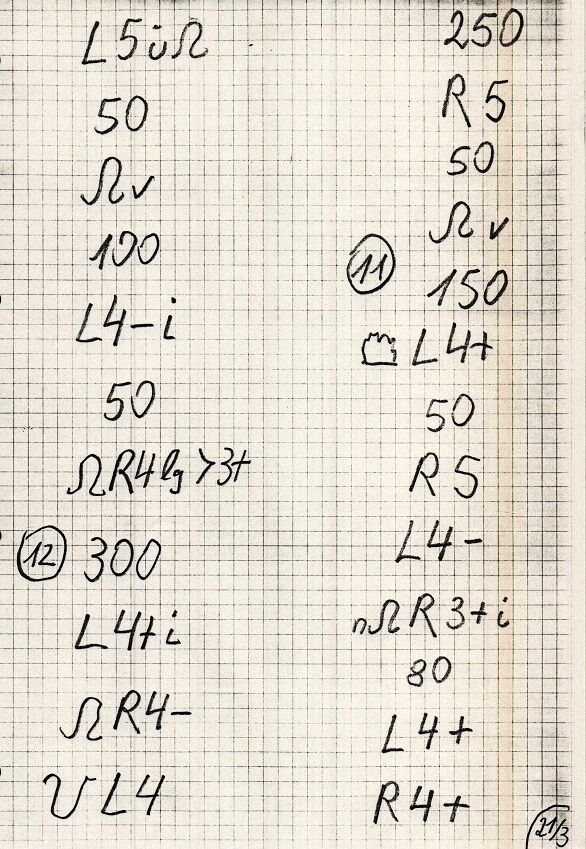 L5üΩ
50
Ωv
100
L4-i
50
ΩR4lg>3+
12 300
L4+i
ΩR4-
L4
250
R5
50
Ωv
11
150
L4+
50
R5
L4-
nΩR3+i
80
L4+
R4+
21/3